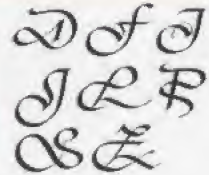 D F I
J L R
S Z